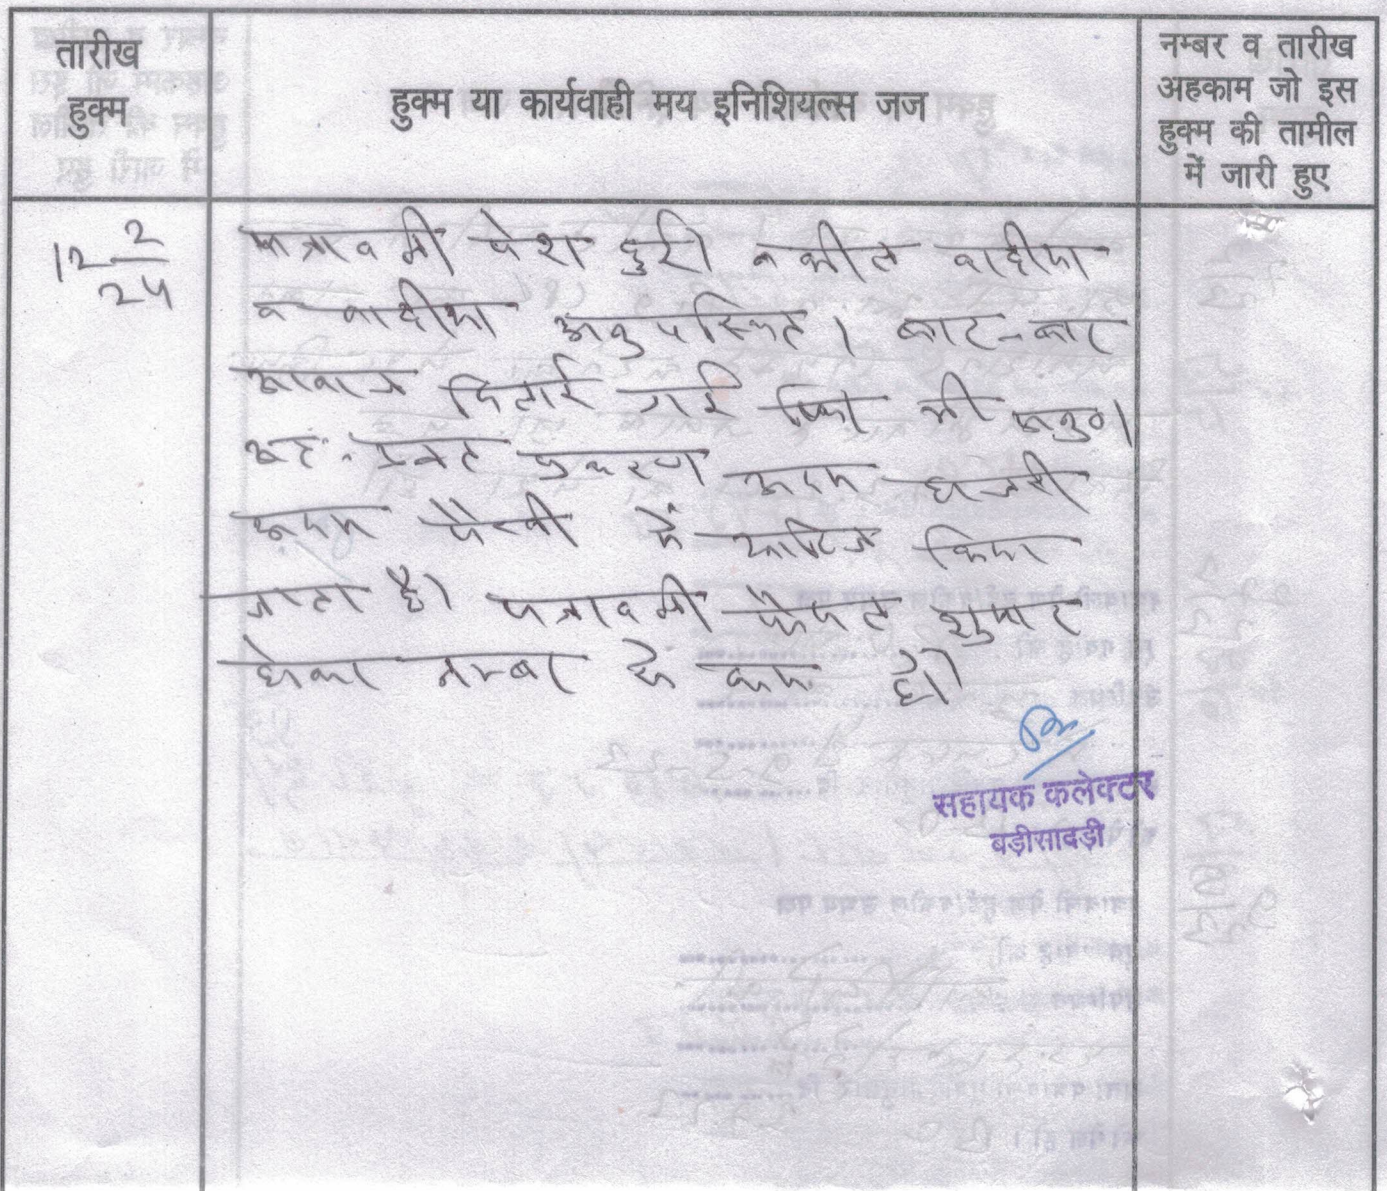 तारीख
हुक्म
हुक्म या कार्यवाही मय इनिशियल्स जज
नम्बर व तारीख
अहकाम जो इस
हुक्म की तामील
में जारी हुए
12 2/24
पत्रावली पेश हुई। वकील वादीया
व वादीया अनुपस्थित। बार-बार
आवाज दिलाई गई फिर भी अनु०।
अतः प्रकरण अदम हाजरी
अदम पैरवी में खारिज किया
जाता है। पत्रावली फैसल शुमार
होकर नम्बर से कम हो।
सहायक कलेक्टर
बड़ीसादड़ी